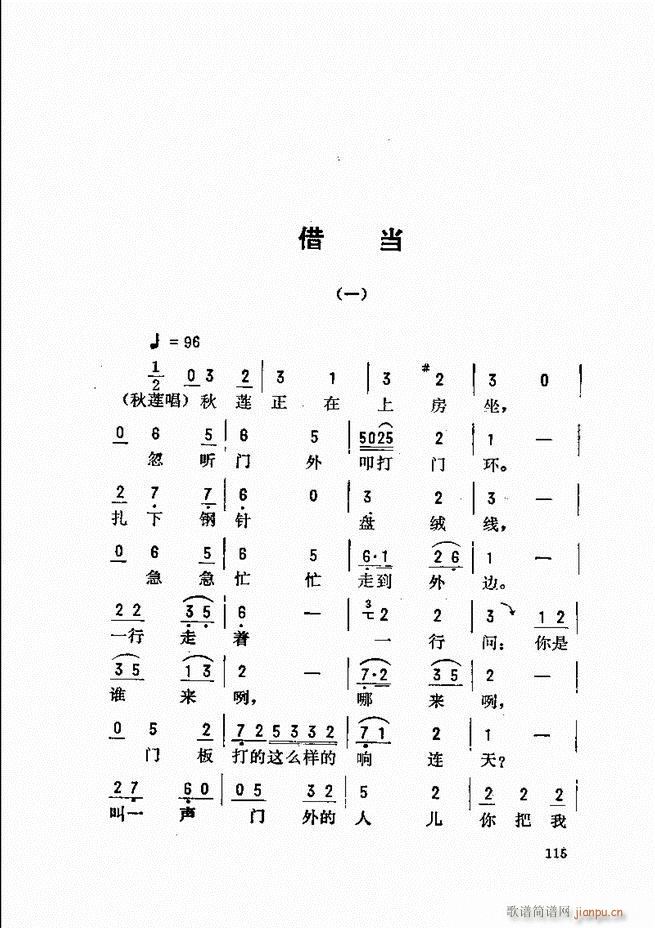 借 当
（一）
♩= 96
1/2 0 3 2 | 3 1 | 3 #2 | 3 0 |
（秋莲唱）秋 莲 正 在 上 房 坐，
0 6 5 | 6 5 | 5025 2 | 1 — |
忽 听 门 外 叩打 门 环。
2 7 7 | 6 0 | 3 2 | 3 — |
扎 下 钢 针 盘 绒 线，
0 6 5 | 6 5 | 6·1 2 6 | 1 — |
急 急 忙 忙 走到 外 边。
2 2 3 5 | 6 — | 2 2 | 3 1 2 |
一行 走 着 一 行 问：你是
3 5 1 3 | 2 — | 7·2 3 5 | 2 — |
谁 来 咧， 哪 来 咧，
0 5 2 | 7 2 5 3 3 2 | 7 1 2 | 1 — |
门 板 打的这么样的 响 连 天？
2 7 6 0 | 0 5 3 2 | 5 2 | 2 2 2 |
叫一 声 门 外的 人 儿 你 把 我
115
歌谱简谱网 jianpu.cn